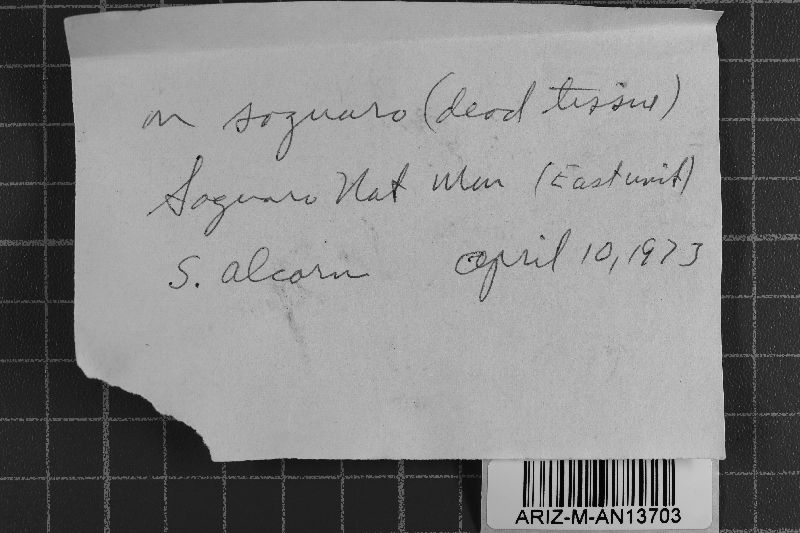 on saguaro (dead tissue)
Saguaro Nat Mon (East unit)
S. Alcorn April 10, 1973
ARIZ-M-AN13703